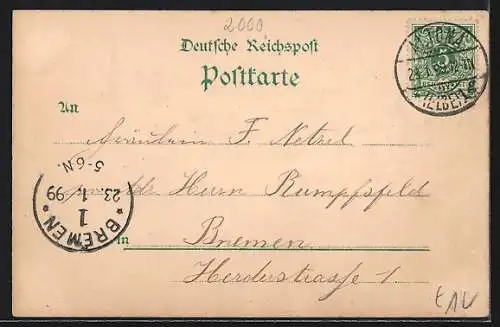 2000
Deutsche Reichspost
Postkarte
An
Fräulein F. Netzel
Herrn Rumpfsfeld
in Bremen
Herderstrasse 1
BREMEN
1
23 1 99
5-6 N.
ALTONA
5